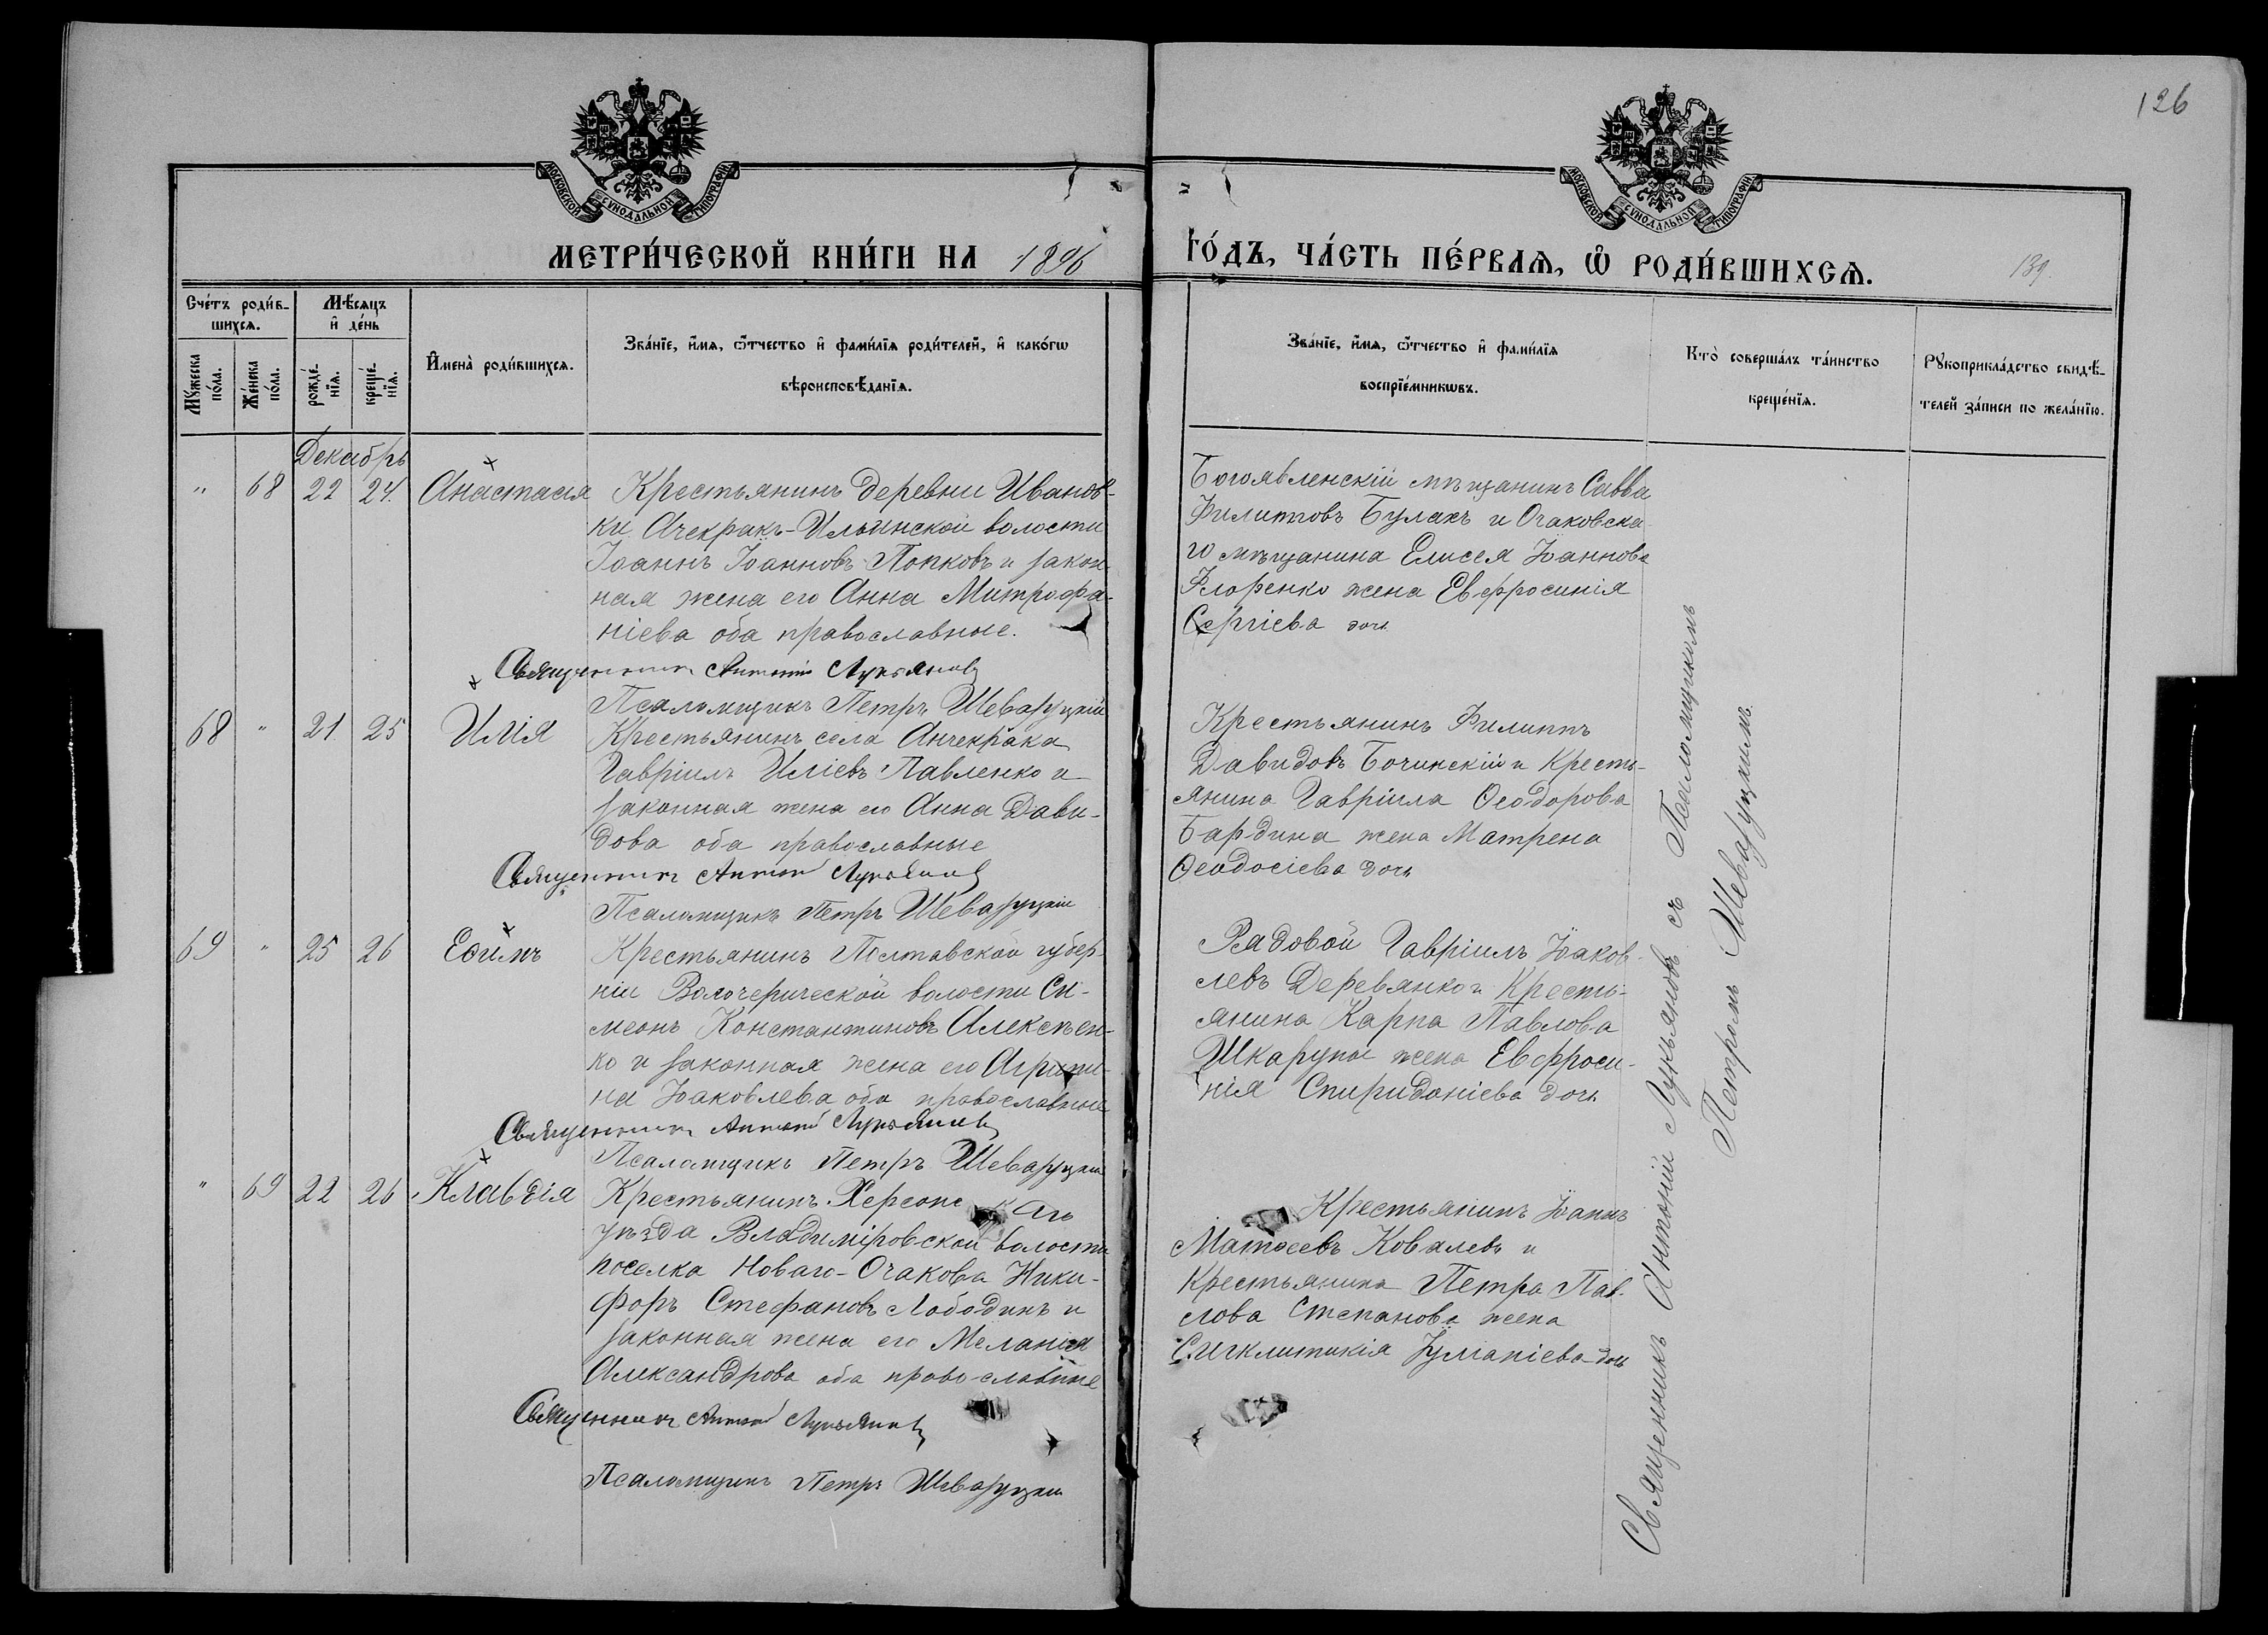 126
МОСКОВСКОЙ СУНОДАЛЬНОЙ ТИПОГРАФІИ
МОСКОВСКОЙ СУНОДАЛЬНОЙ ТИПОГРАФІИ
МЕТРИ́ЧЕСКОЙ КНИ́ГИ НА 1896
ГО́ДЪ, ЧА́СТЬ ПЕ́РВАѦ, Ѡ РОДИ́ВШИХСѦ.
139.
Сче́тъ роди́в-
шихсѧ.
Мѣ́сѧцъ
и҆ де́нь
Мꙋ́жеска по́ла.
Же́нска по́ла.
рожде́-
нїѧ.
креще́-
нїѧ.
И҆мена̀ роди́вшихсѧ.
Зва́нїе, и҆́мѧ, ѻ҆́тчество и҆ фами́лїѧ роди́телей, и҆ како́гѡ
вѣроисповѣ́данїѧ.
Зва́нїе, и҆́мѧ, ѻ҆́тчество и҆ фами́лїѧ
воспрїе́мникѡвъ.
Кто̀ соверша́лъ та́инство
креще́нїѧ.
Рꙋкоприкла́дство свидѣ́-
телей за́писи по жела́нїю.
Декабрь
" 68 22 24. Анастасія
Крестьянинъ деревни Иванов-
ки Ачекракъ-Ильинской волости
Іоаннъ Іоанновъ Попковъ и закон-
ная жена его Анна Митрофа-
ніева оба православные.
Священникъ Антоній Лукьяновъ
Псаломщикъ Петръ Шеваруцкій
Богоявленскій мѣщанинъ Савва
Филипповъ Булахъ и Очаковска-
го мѣщанина Елисея Іоаннова
Флоренко жена Евфросинія
Сергіева дочь
68 " 21 25 Илія
Крестьянинъ села Анчекрака
Гавріилъ Иліевъ Павленко и
законная жена его Анна Дави-
дова оба православные
Священникъ Антоній Лукьяновъ
Псаломщикъ Петръ Шеваруцкій
Крестьянинъ Филиппъ
Давидовъ Бочинскій и Кресть-
янина Гавріила Ѳеодорова
Бардина жена Матрена
Ѳеодосіева дочь
69 " 25 26 Еѳимъ
Крестьянинъ Полтавской губер-
ніи волости Си-
меонъ Константиновъ Алексѣен-
ко и законная жена его Агриппи-
на Іаковлева оба православные
Священникъ Антоній Лукьяновъ
Псаломщикъ Петръ Шеваруцкій
Рядовой Гавріилъ Іаков-
левъ Деревянко и Кресть-
янина Карпа Павлова
Шкарупы жена Евфроси-
нія Спиридоніева дочь
" 69 22 26 Клавдія
Крестьянинъ Херсонскаго
уѣзда Владиміровской волости
поселка Новаго-Очакова Ники-
форъ Стефановъ Лободинъ и
законная жена его Меланія
Александрова оба православные
Священникъ Антоній Лукьяновъ
Псаломщикъ Петръ Шеваруцкій
Крестьянинъ Іоаннъ
Матѳеевъ Ковалевъ и
Крестьянина Петра Пав-
лова Степанова жена
Сигклитикія дочь
Священникъ Антоній Лукьяновъ съ Псаломщикомъ
Петромъ Шеваруцкимъ.